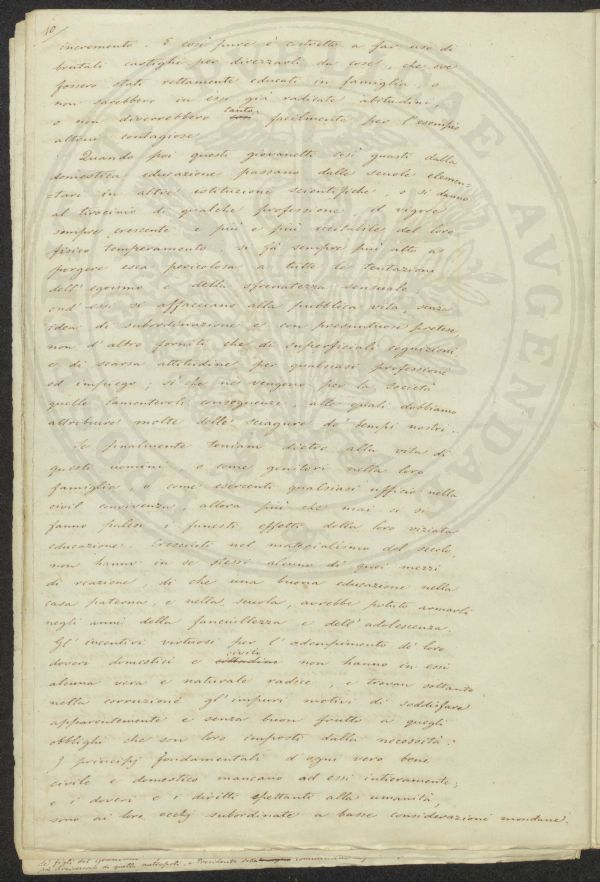 10/
incremento. E così pure è costretto a far uso di
brutali castighi per divezzarli da cose, che ove
fossero stati rettamente educati in famiglia, o
non sarebbero in essi già radicate abitudini,
o non diverrebbero tanto facilmente per l'esempio
altrui contagiose.
Quando poi questi giovanetti così guasti dalla
domestica educazione passano dalle scuole elemen-
-tari in altre istituzione scientifiche, o si danno
al tirocinio di qualche professione, il vigore
sempre crescente e più e più eccitabile del loro
fisico temperamento si fa sempre più atto a
porgere esca pericolosa a tutte le tentazioni
dell'egoismo e della sfrenatezza sensuale
ond'essi si affacciano alla pubblica vita, senza
idea di subordinazione e con presuntuose pretese
non d'altro forniti che di superficiali cognizioni
e di scarsa attitudine per qualsiasi professione
ed impiego; sì che ne vengono per la società
quelle lamentevoli conseguenze alle quali dobbiamo
attribuire molte delle sciagure de' tempi nostri.
Se finalmente teniam dietro alla vita di
questi uomini, o come genitori nella loro
famiglia o come esercenti qualsiasi ufficio nella
civil convivenza, allora più che mai ci si
fanno palesi i funesti effetti della loro viziata
educazione. Cresciuti nel materialismo del secolo,
non hanno in se stessi alcuno di quei mezzi
di reazione, di che una buona educazione nella
casa paterna, e nella scuola, avrebbe potuto armarli
negli anni della fanciullezza e dell'adolescenza.
Gl'incentivi virtuosi per l'adempimento de' loro
doveri domestici e cittadini civili non hanno in essi
alcuna vera e naturale radice; e trovan soltanto
nella corruzione gl'impuri motivi di soddisfare
apparentemente e senza buon frutto a quegli
obblighi che son loro imposti dalla necessità.
I principj fondamentali d'ogni vero bene
civile e domestico mancano ad essi intieramente;
e i doveri e i diritti spettanti alla umanità,
sono ai loro occhj subordinate a basse considerazioni mondane.